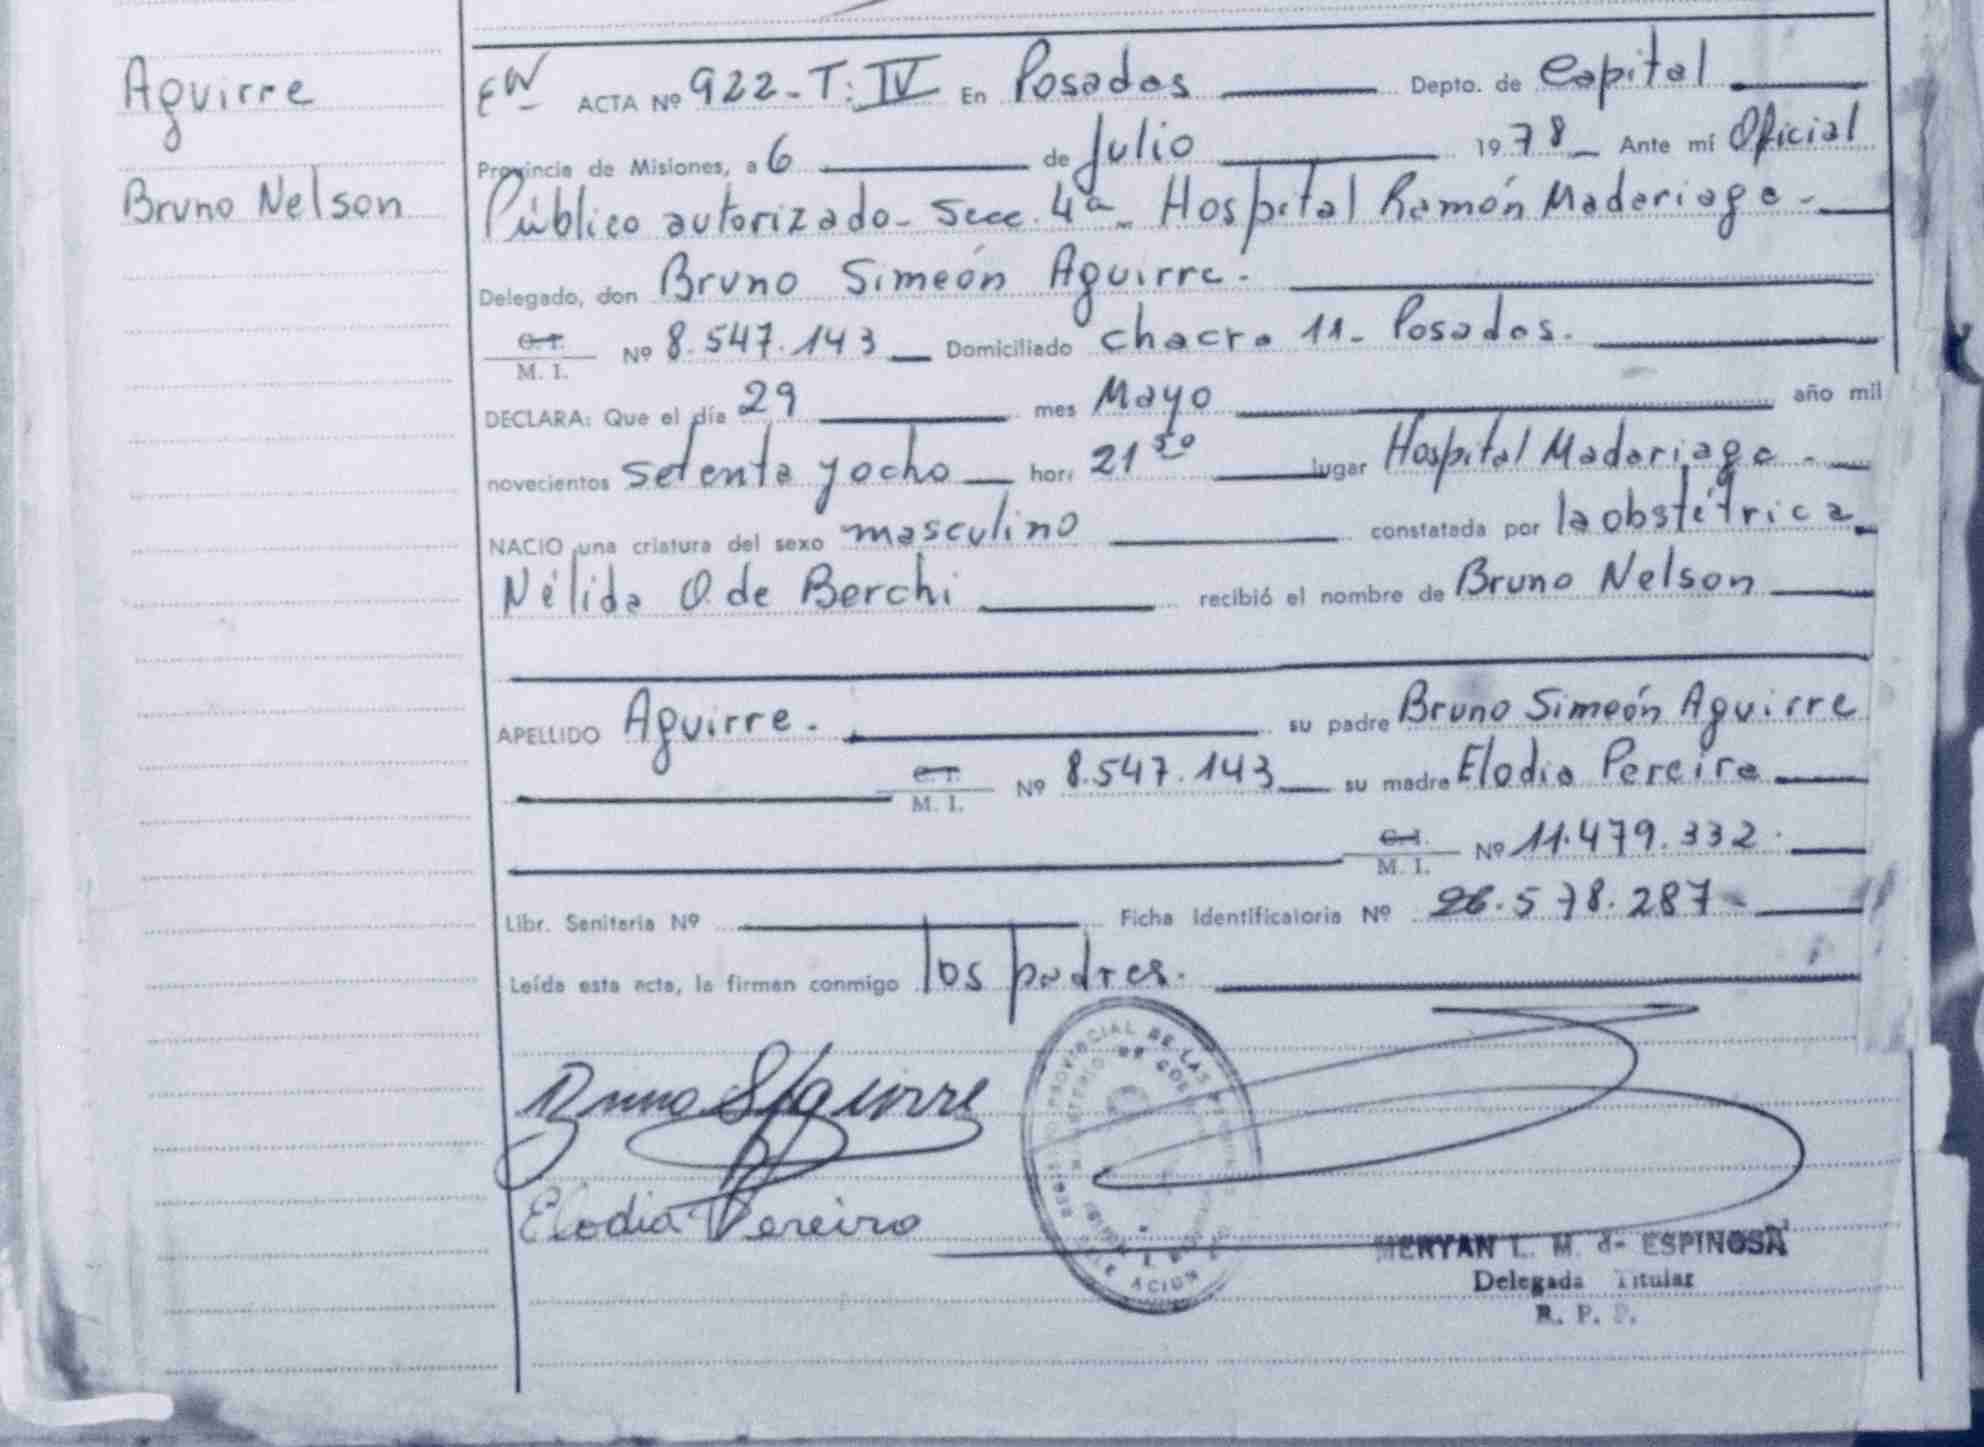 Aguirre
Bruno Nelson
EW ACTA Nº 922-T: IV En Posadas Depto. de Capital
Provincia de Misiones, a 6 de Julio 1978 Ante mí Oficial
Público autorizado - Secc. 4ª - Hospital Ramón Madariaga -
Delegado, don Bruno Simeón Aguirre.
C. I.
M. I. Nº 8.547.143 Domiciliado chacra 11- Posadas.
DECLARA: Que el día 29 mes Mayo año mil
novecientos setenta y ocho hora 21 50 lugar Hospital Madariaga -
NACIO una criatura del sexo masculino constatada por la obstétrica
Nélida O. de Berchi recibió el nombre de Bruno Nelson
APELLIDO Aguirre. su padre Bruno Simeón Aguirre
C. I.
M. I. Nº 8.547.143 su madre Elodia Pereira
C. I.
M. I. Nº 11.479.332
Libr. Sanitaria Nº Ficha Identificatoria Nº 26.578.287
Leída esta acta, la firman conmigo los padres.
Bruno S Aguirre
Elodia Pereira
PROVINCIAL DE LAS
MINISTERIO DE
MERYAN L. M. de ESPINOSA
Delegada Titular
R. P. P.